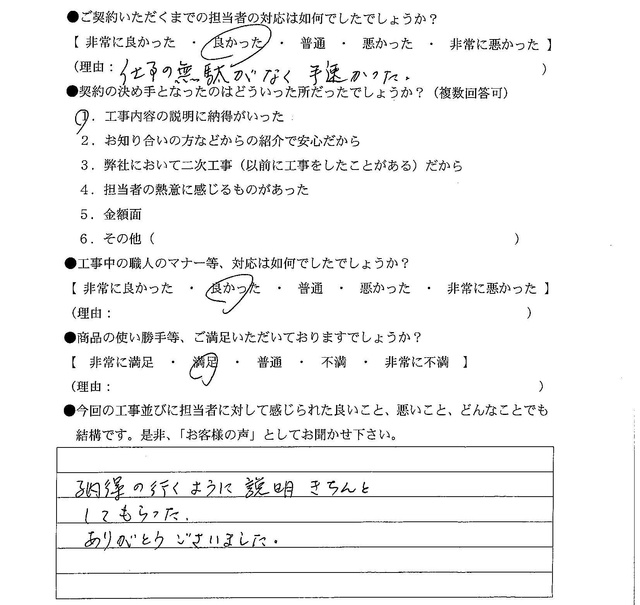 ●ご契約いただくまでの担当者の対応は如何でしたでしょうか？
【 非常に良かった ・ 良かった ・ 普通 ・ 悪かった ・ 非常に悪かった 】
(理由： 仕事の無駄がなく 手速かった。 )
●契約の決め手となったのはどういった所だったでしょうか？（複数回答可）
１．工事内容の説明に納得がいった
２．お知り合いの方などからの紹介で安心だから
３．弊社において二次工事（以前に工事をしたことがある）だから
４．担当者の熱意に感じるものがあった
５．金額面
６．その他（ ）
●工事中の職人のマナー等、対応は如何でしたでしょうか？
【 非常に良かった ・ 良かった ・ 普通 ・ 悪かった ・ 非常に悪かった 】
(理由： )
●商品の使い勝手等、ご満足いただいておりますでしょうか？
【 非常に満足 ・ 満足 ・ 普通 ・ 不満 ・ 非常に不満 】
(理由： )
●今回の工事並びに担当者に対して感じられた良いこと、悪いこと、どんなことでも
結構です。是非、「お客様の声」としてお聞かせ下さい。
納得の行くように説明きちんと
してもらった。
ありがとうございました。